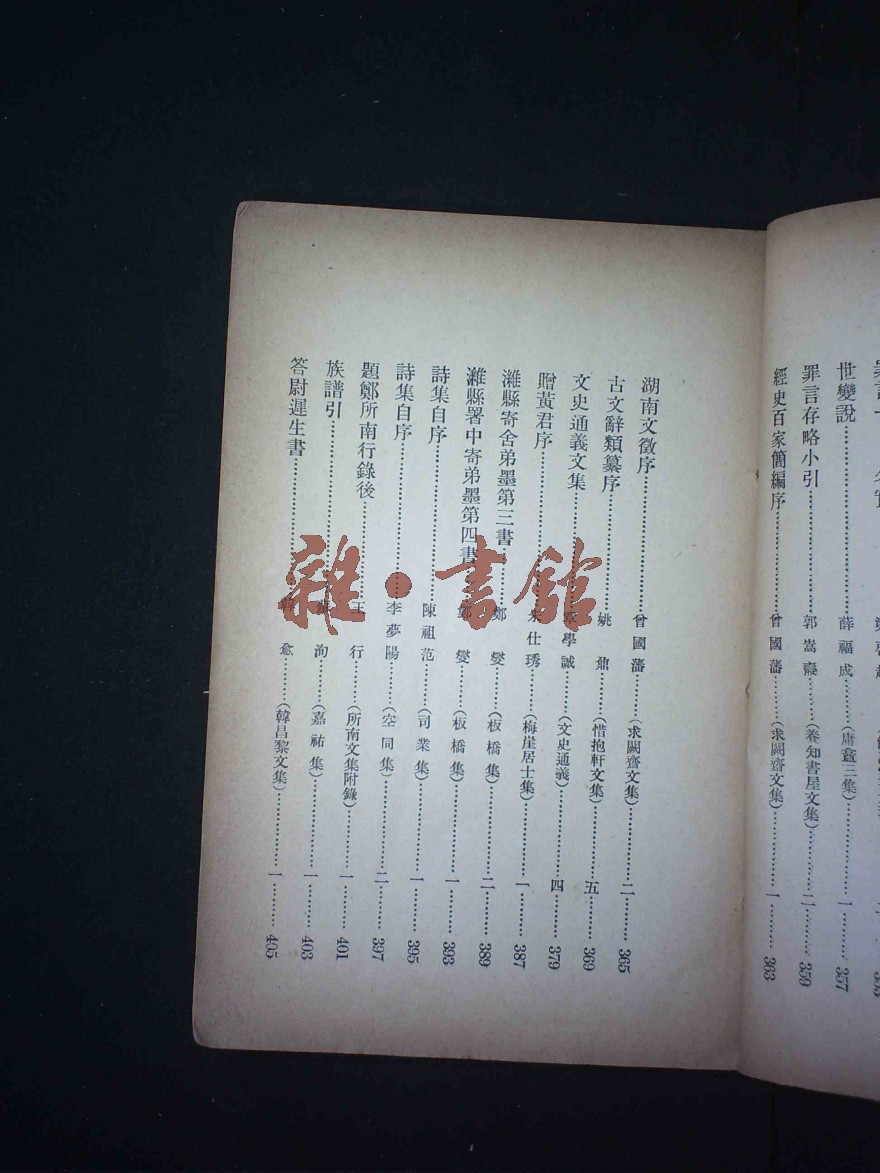 世變說 薛福成 (庸盦三集) 一 357
罪言存略小引 郭嵩燾 (養知書屋文集) 二 359
經史百家簡編序 曾國藩 (求闕齋文集) 一 363
湖南文徵序 曾國藩 (求闕齋文集) 二 365
古文辭類纂序 姚鼐 (惜抱軒文集) 五 369
文史通義文集 學誠 (文史通義) 四 379
贈黃君序 朱仕琇 (梅崖居士集) 一 387
濰縣寄舍弟墨第三書 鄭燮 (板橋集) 二 389
濰縣署中寄弟墨第四書 鄭燮 (板橋集) 一 393
詩集自序 陳祖范 (司業集) 一 395
詩集自序 李夢陽 (空同集) 二 397
題鄭所南行錄後 王行 (所南文集附錄) 一 401
族譜引 洵 (嘉祐集) 一 403
答尉遲生書 愈 (韓昌黎文集) 一 405
雜·書館